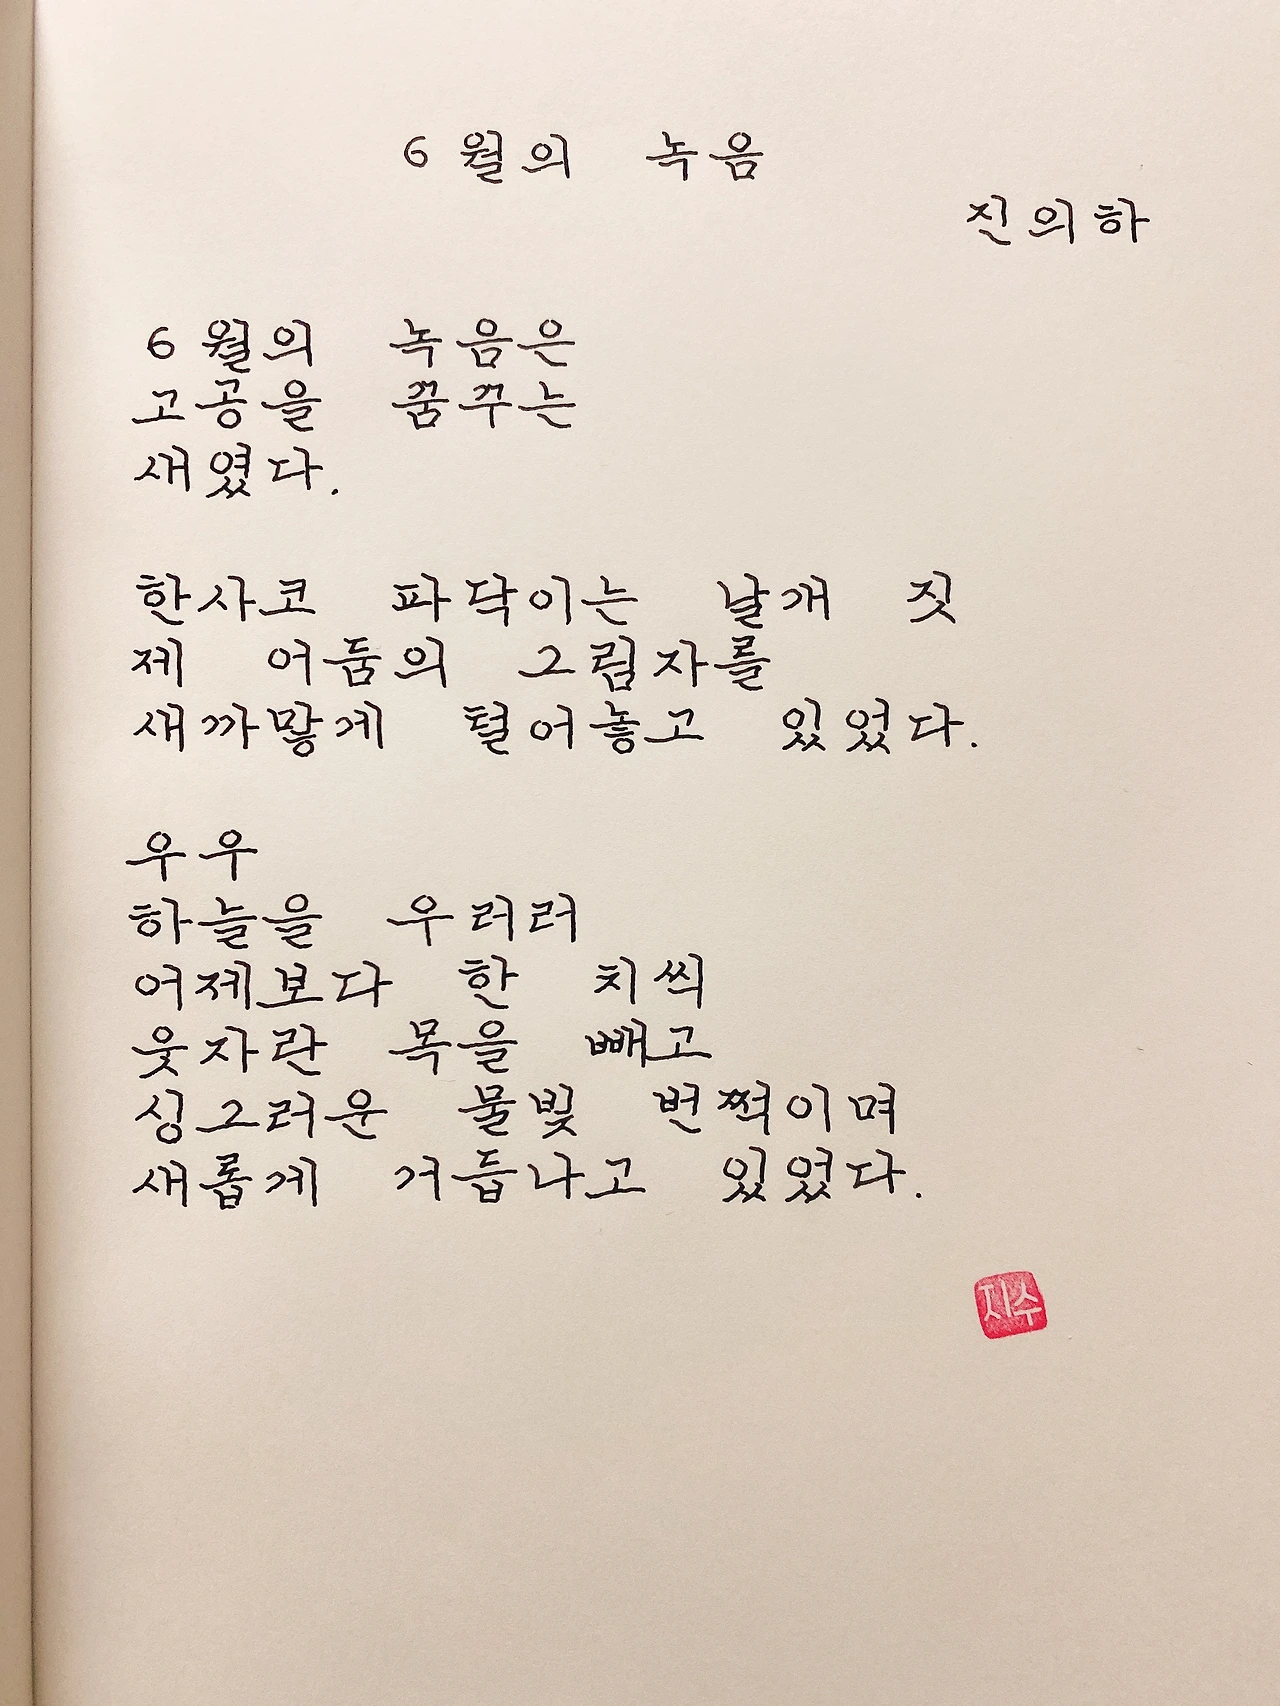 6월의 녹음
진의하
6월의 녹음은
고공을 꿈꾸는
새였다.
한사코 파닥이는 날개 짓
제 어둠의 그림자를
새까맣게 털어놓고 있었다.
우우
하늘을 우러러
어제보다 한 치씩
웃자란 목을 빼고
싱그러운 물빛 번쩍이며
새롭게 거듭나고 있었다.
지수